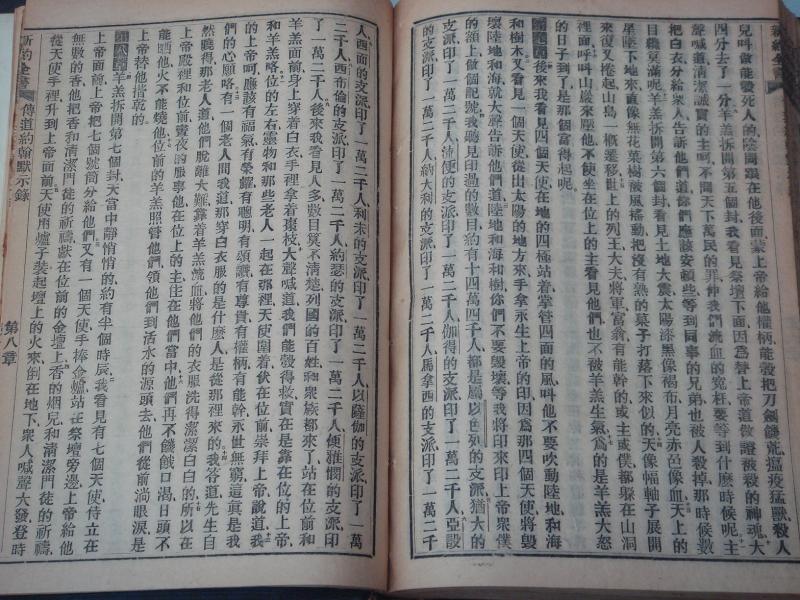 新約全書
兒叫做能殺死人的陰間跟在他後面蒙上帝給他權柄能彀把刀劍饑荒瘟疫猛獸殺人
四分去了一分羊羔拆開第五個封我看見祭壇下面因爲替上帝道做證被殺的神魂大
聲喊道清潔誠實的主呵不問天下萬民的罪伸我們流血的寃枉要等到什麼時候呢主
把白衣分給衆人告訴他們道你們應該安頓些等到同事的兄弟也被人殺掉那時候數
目纔算滿呢羊羔拆開第六個封看見土地大震太陽漆黑像褐布月亮赤色像血天上的
星墜下地來直像無花菓樹被風搖動把沒有熟的菓子打落下來似的天像幅軸子展開
來復又捲起山島一槪遷移世上的列王大夫將軍富翁有能幹的或主或僕都躲在山洞
裡面呼叫山巖來壓他不使坐在位上的主看見他們也不被羊羔生氣爲的是羊羔大怒
的日子到了是那個當得起呢
後來我看見四個天使在地的四極站着掌管四面的風叫他不要吹動陸地和海
和樹木又看見一個天使從出太陽的地方來手拿永生上帝的印因爲那四個天使將毀
壞陸地和海就大聲告訴他們道陸地和海和樹你們不要毀壞等我將印來印上帝衆僕
的額上做個記號我聽見印過的數目約有十四萬四千人都是屬以色列的支派猶大的
支派印了一萬二千人流便的支派印了一萬二千人伽得的支派印了一萬二千人亞設
的支派印了一萬二千人納大利的支派印了一萬二千人馬拿西的支派印了一萬二千
人西面的支派印了一萬二千人利未的支派印了一萬二千人以薩伽的支派印了一萬
二千人西布倫的支派印了一萬二千人約瑟的支派印了一萬二千人便雅憫的支派印
了一萬二千人後來我看見人多數目算不淸楚列國的百姓和衆族都來了站在位前和
羊羔面前身上穿着白衣手裡拿着棗枝大聲喊道我們能彀得救實在是靠在位的上帝
和羊羔咯位的左右靈物和那些老人一起在那裡天使圍着伏在位前崇拜上帝說道我
的上帝呵應該有福氣有榮耀有聰明有頌讚有尊貴有權柄有能幹永世無窮這眞是我
們的心願咯有一個老人問我道那穿白衣服的是什麼人是從那裡來的我答道先生自
然曉得那老人道他們脫離大難靠着羊羔流血將他們的衣服洗得潔潔白白的所以在
上帝殿裡和位前晝夜的服事他在位上的主住在他們當中他們再不饑餓口渴日頭不
能晒他火不能燒他位前的羊羔照管他們領他們到活水的源頭去他們從前淌眼淚是
上帝替他揩乾的
第八章羊羔拆開第七個封天當中靜悄悄的約有半個時辰我看見有七個天使侍立在
上帝面前上帝把七個號筒分給他們又有一個天使手捧金爐站在祭壇旁邊上帝給他
無數的香他把香和清潔門徒的祈禱獻在位前的金壇上香的烟兒和清潔門徒的祈禱
從天使手裡升到上帝面前天使用爐子裝起壇上的火來倒在地下衆人喊聲大發登時
新約全書 傳道約翰默示錄 第八章